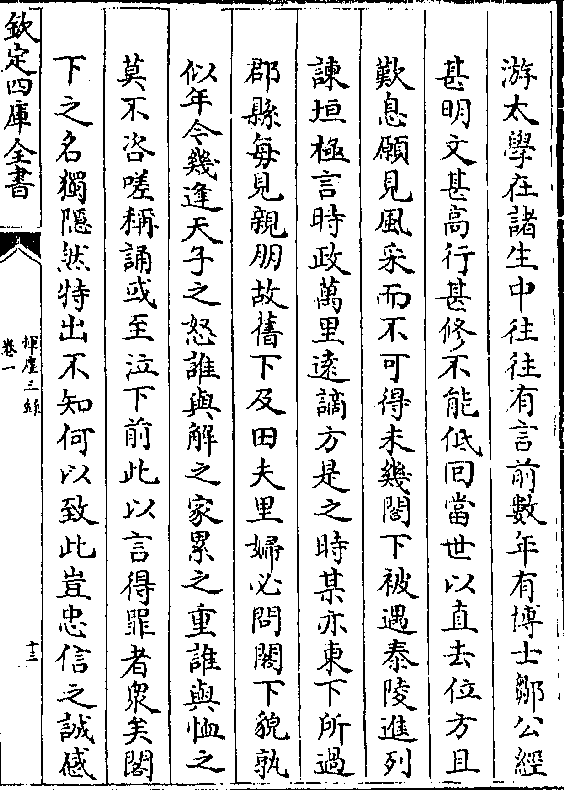 游太學在諸生中往往有言前數年有博士鄒公經
甚明文甚高行甚修不能低回當世以直去位方且
歎息願見風采而不可得未幾閣下被遇泰陵進列
諫垣極言時政萬里遠謫方是之時某亦東下所過
郡縣每見親朋故舊下及田夫里婦必問閣下貌孰
似年今幾逢天子之怒誰與解之家累之重誰與恤之
莫不咨嗟稱誦或至泣下前此以言得罪者衆矣閣
下之名獨隠然特出不知何以致此豈忠信之誠感
欽定四庫全書
揮麈三錄
卷一
十三